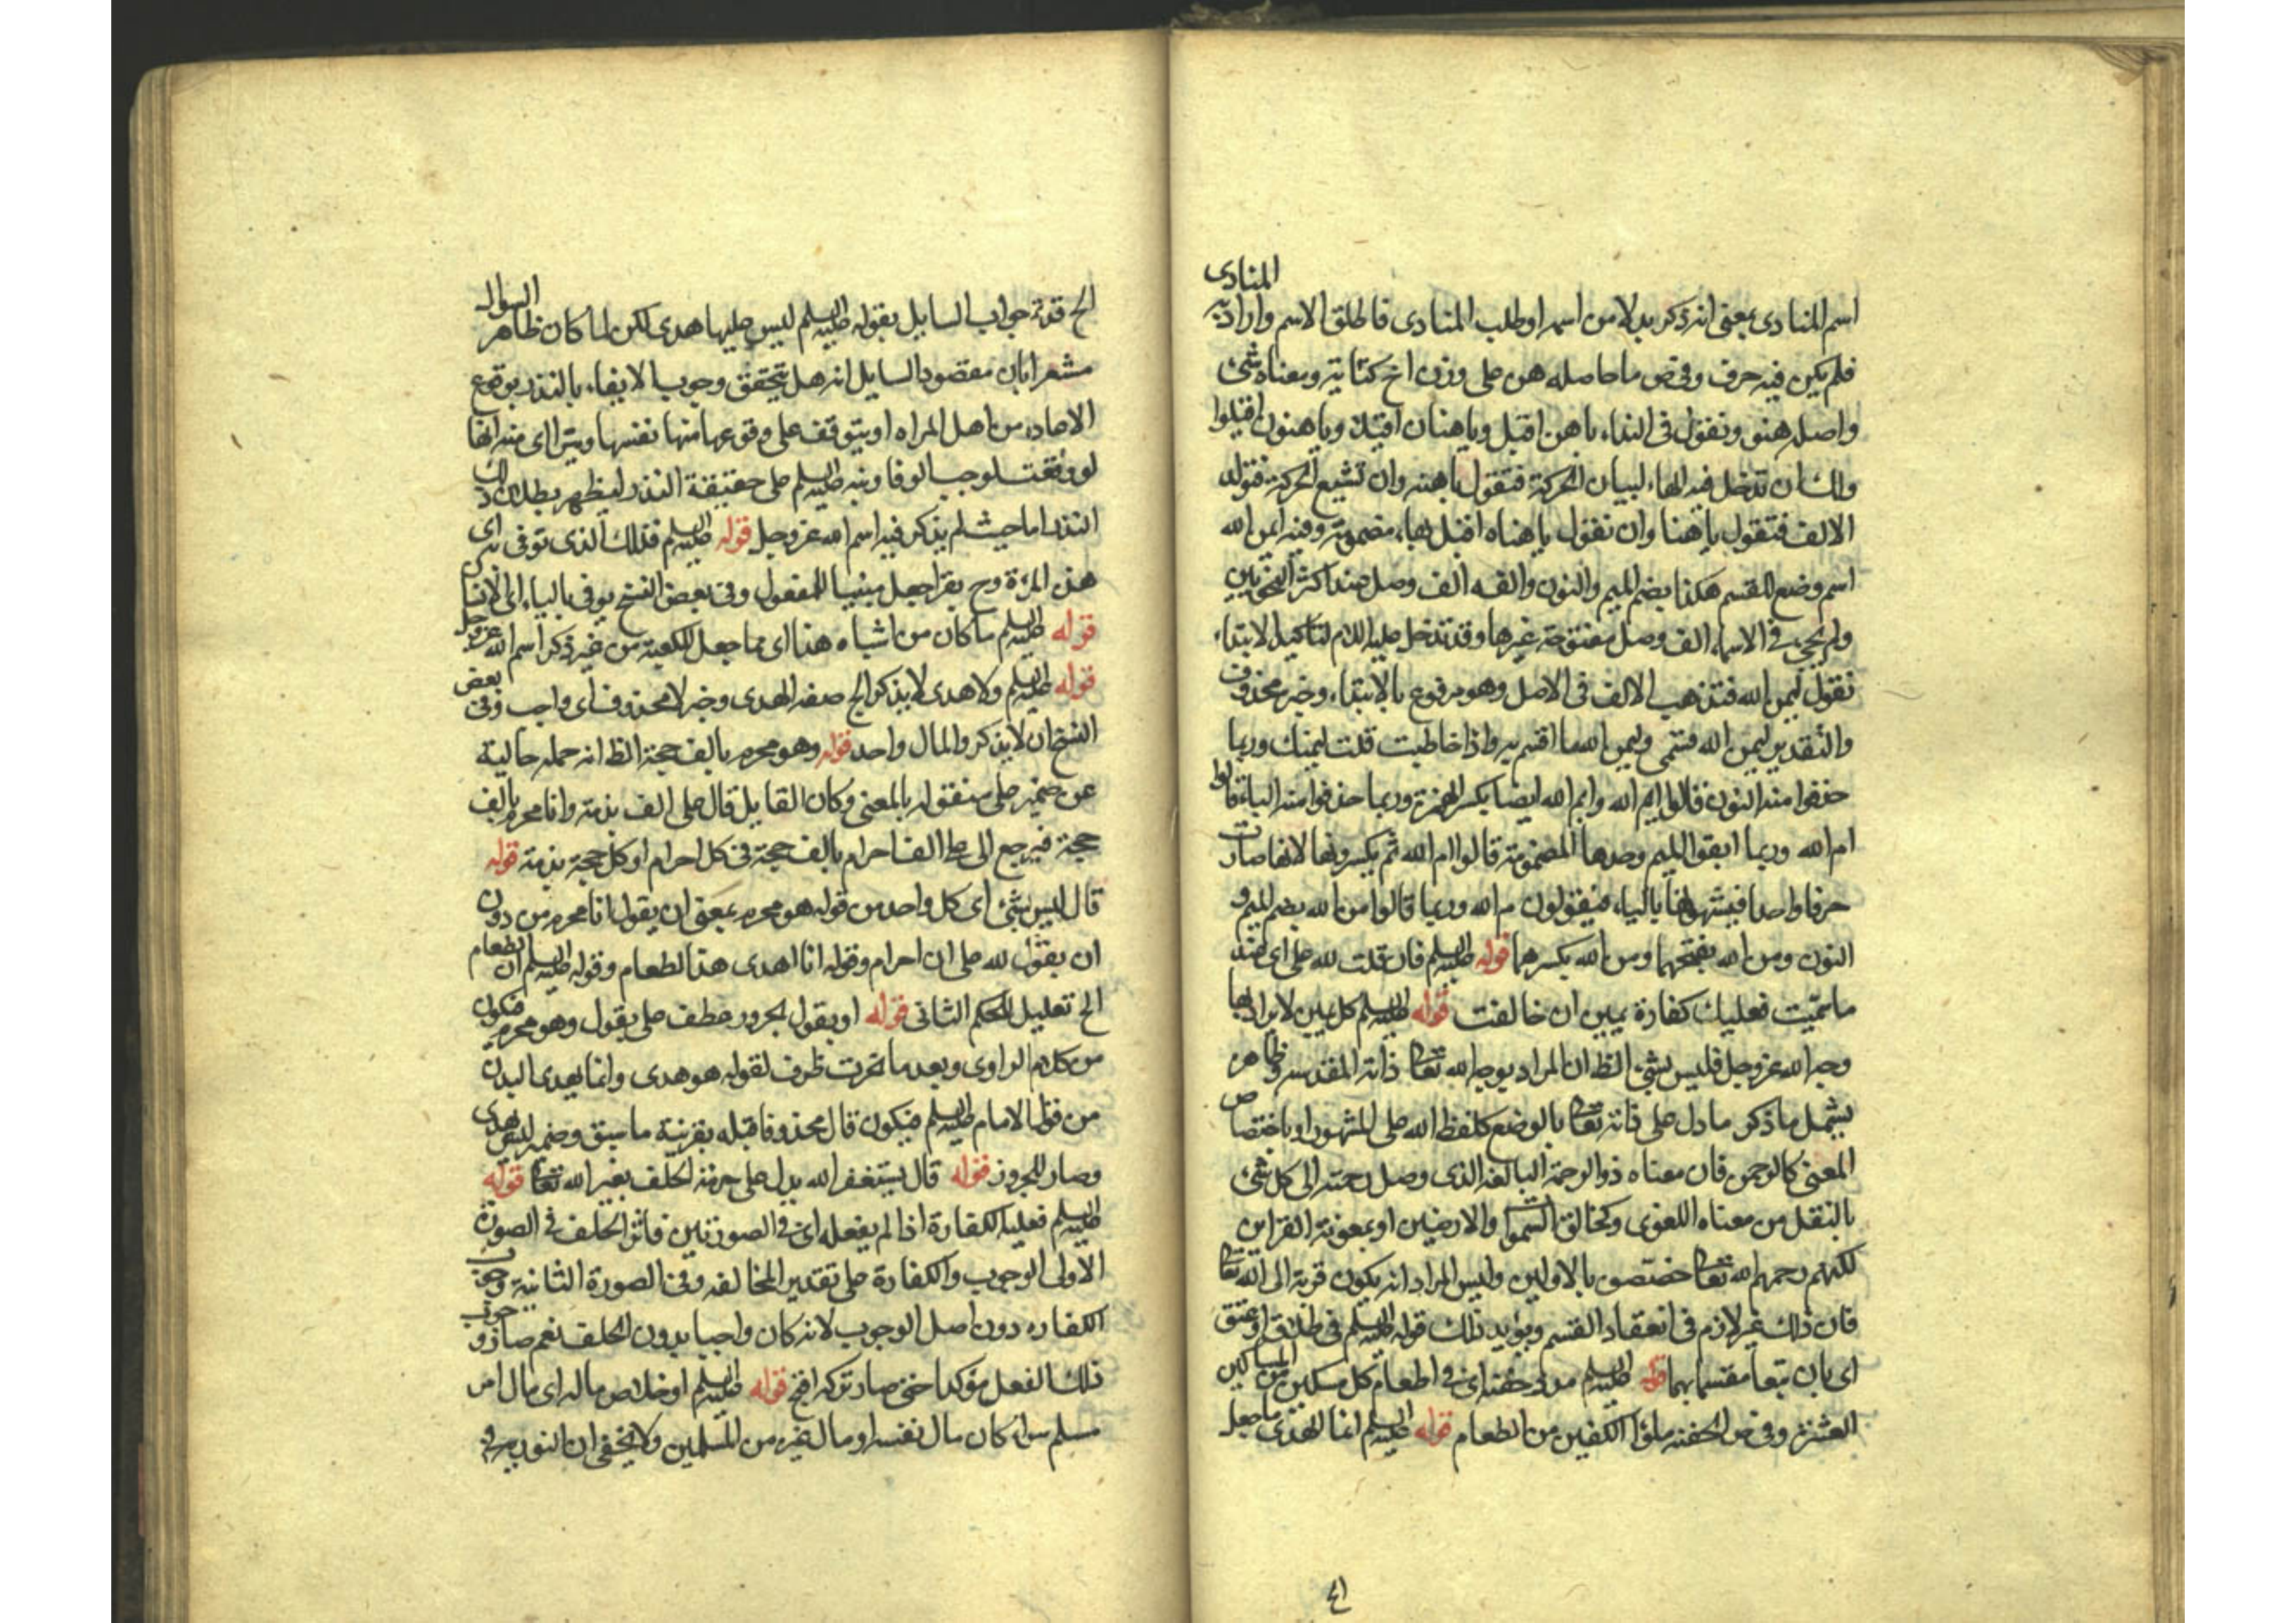 اسم المنادى بمعنى انه ذكر بدلا من اسمه او طلب المنادى فاطلق الاسم واراد به المنادى
فلم يكن فيه حرف وفى ض ما حاصله هن على وزن اخ كناية ومعناه شئ
واصله هنو وتقول فى النداء يا هن اقبل ويا هنان اقبلا ويا هنون اقبلوا
ولك ان تدخل فيه الهاء لبيان الحركة فتقول يا هنه وان تشبع الحركة فتولد
الالف فتقول يا هنا وان تقول يا هناه اقبل بهاء مضمومة وفيه ايمن الله
اسم وضع للقسم هكذا بضم الميم والنون والفه الف وصل عند اكثر النحويين
ولم يجئ فى الاسماء الف وصل مفتوحة غيرها وقد تدخل عليه اللام لتاكيد الابتداء
تقول ليمن الله فتذهب الالف فى الاصل وهو مرفوع بالابتداء وخبره محذوف
والتقدير ليمن الله قسمى وليمن الله ما اقسم به واذا خاطبت قلت ليمنك وربما
حذفوا منه النون قالوا ايم الله وايم الله ايضا بكسر الهمزة وربما حذفوا منه الياء قالوا
ام الله وربما ابقوا الميم وحدها المضمومة قالوا م الله ثم يكسرونها لانها صارت
حرفا واحدا فيشبهونها بالباء فيقولون م الله وربما قالوا من الله بضم الميم و
النون ومن الله بفتحهما ومن الله بكسرهما قوله عليه السلم فان قلت لله على اى عند
ما سميت فعليك كفارة يمين ان خالفت قوله عليه السلم كل يمين لا يراد بها
وجه الله عز وجل فليس بشئ الظ ان المراد بوجه الله تعالى ذاته المقدسه وظاهره
يشمل ما ذكر ما دل على ذاته تعالى بالوضع كلفظ الله على المشهور او باختصاص
المعنى كالرحمن فان معناه ذو الرحمة البالغه الذى وصل رحمته الى كل شئ
بالنقل من معناه اللغوى وكخالق السموات والارضين او بمعونة القراين
لكنهم رحمهم الله تعالى خصصوه بالاولين وليس المراد انه يكون قربة الى الله تعالى
فان ذلك غير لازم فى انعقاد القسم ويؤيد ذلك قوله عليه السلم فى طلاق او عتق
اى بان تبعا مقسما بهما قوله عليه السلم مد وحفنه اى فى اطعام كل مسكين من المساكين
العشرة وفى ض الحفنه ملؤ الكفين من الطعام قوله عليه السلم انما الهدى ما جعل
الخ قد تم جواب السايل بقوله عليه السلم ليس عليها هدى لكن لما كان ظاهر السوال
مشعرا بان مقصود السايل انه هل يتحقق وجوب الايفاء بالنذر بوقوع
الاعاده من اهل المراه او يتوقف على وقوعها منها نفسها ويترااى منه انها
لو وقعت لوجب الوفا ونبه عليه السلم على حقيقة النذر ليظهر بطلان ذلك
النذر اما حيث لم يذكر فيه اسم الله عز وجل قوله عليه السلم فذلك الذى توفى به اى
هذه المرءة وح يقرا جعل مبنيا للمفعول وفى بعض النسخ يوفى بالياء اى الانسان
قوله عليه السلم ما كان من اشباه هذا اى مما جعل للكعبة من غير ذكر اسم الله عز وجل
قوله عليه السلم ولا هدى لا يذكر الخ صفه الهدى وخبر لا محذوف اى واجب وفى بعض
النسخ ان لا يذكر والمال واحد قوله وهو محرم بالف حجة الظ انه جمله حالية
عن ضمير على منقوله بالمعنى وكان القايل قال على الف بدنة وانا محرم بالف
حجة فيرجع الى على الف احرام بالف حجة فى كل احرام او كل حجة بدنة قوله
قال ليس بشئ اى كل واحد من قوله هو محرم بمعنى ان يقول انا محرم من دون
ان يقول لله على ان احرام وقوله انا اهدى هذا الطعام وقوله عليه السلم ان الطعام
الخ تعليل للحكم الثانى قوله او يقول لجزور عطف على يقول وهو محرم فيكون
من كلام الراوى وبعد ما نحرت ظرف لقوله هو هدى وانما يهدى البدن
من قول الامام عليه السلم فيكون قال محذوفا قبله بقرينة ما سبق وضمير ليس يهدى
وصار للجزور قوله قال يستغفر الله يدل على حرمة الحلف بغير الله تعالى قوله
عليه السلم فعليه الكفارة اذا لم يفعله اى فى الصورتين فاثر الحلف فى الصورة
الاولى الوجوب والكفارة على تقدير المخالفه وفى الصورة الثانية وجوب
الكفاره دون اصل الوجوب لانه كان واجبا بدون الحلف نعم صار وجوب
ذلك الفعل مؤكدا حتى صار تركه اقبح قوله عليه السلم او خلاص ماله اى مال امرء
مسلم سواء كان مال نفسه او مال غيره من المسلمين ولا يخفى ان النون